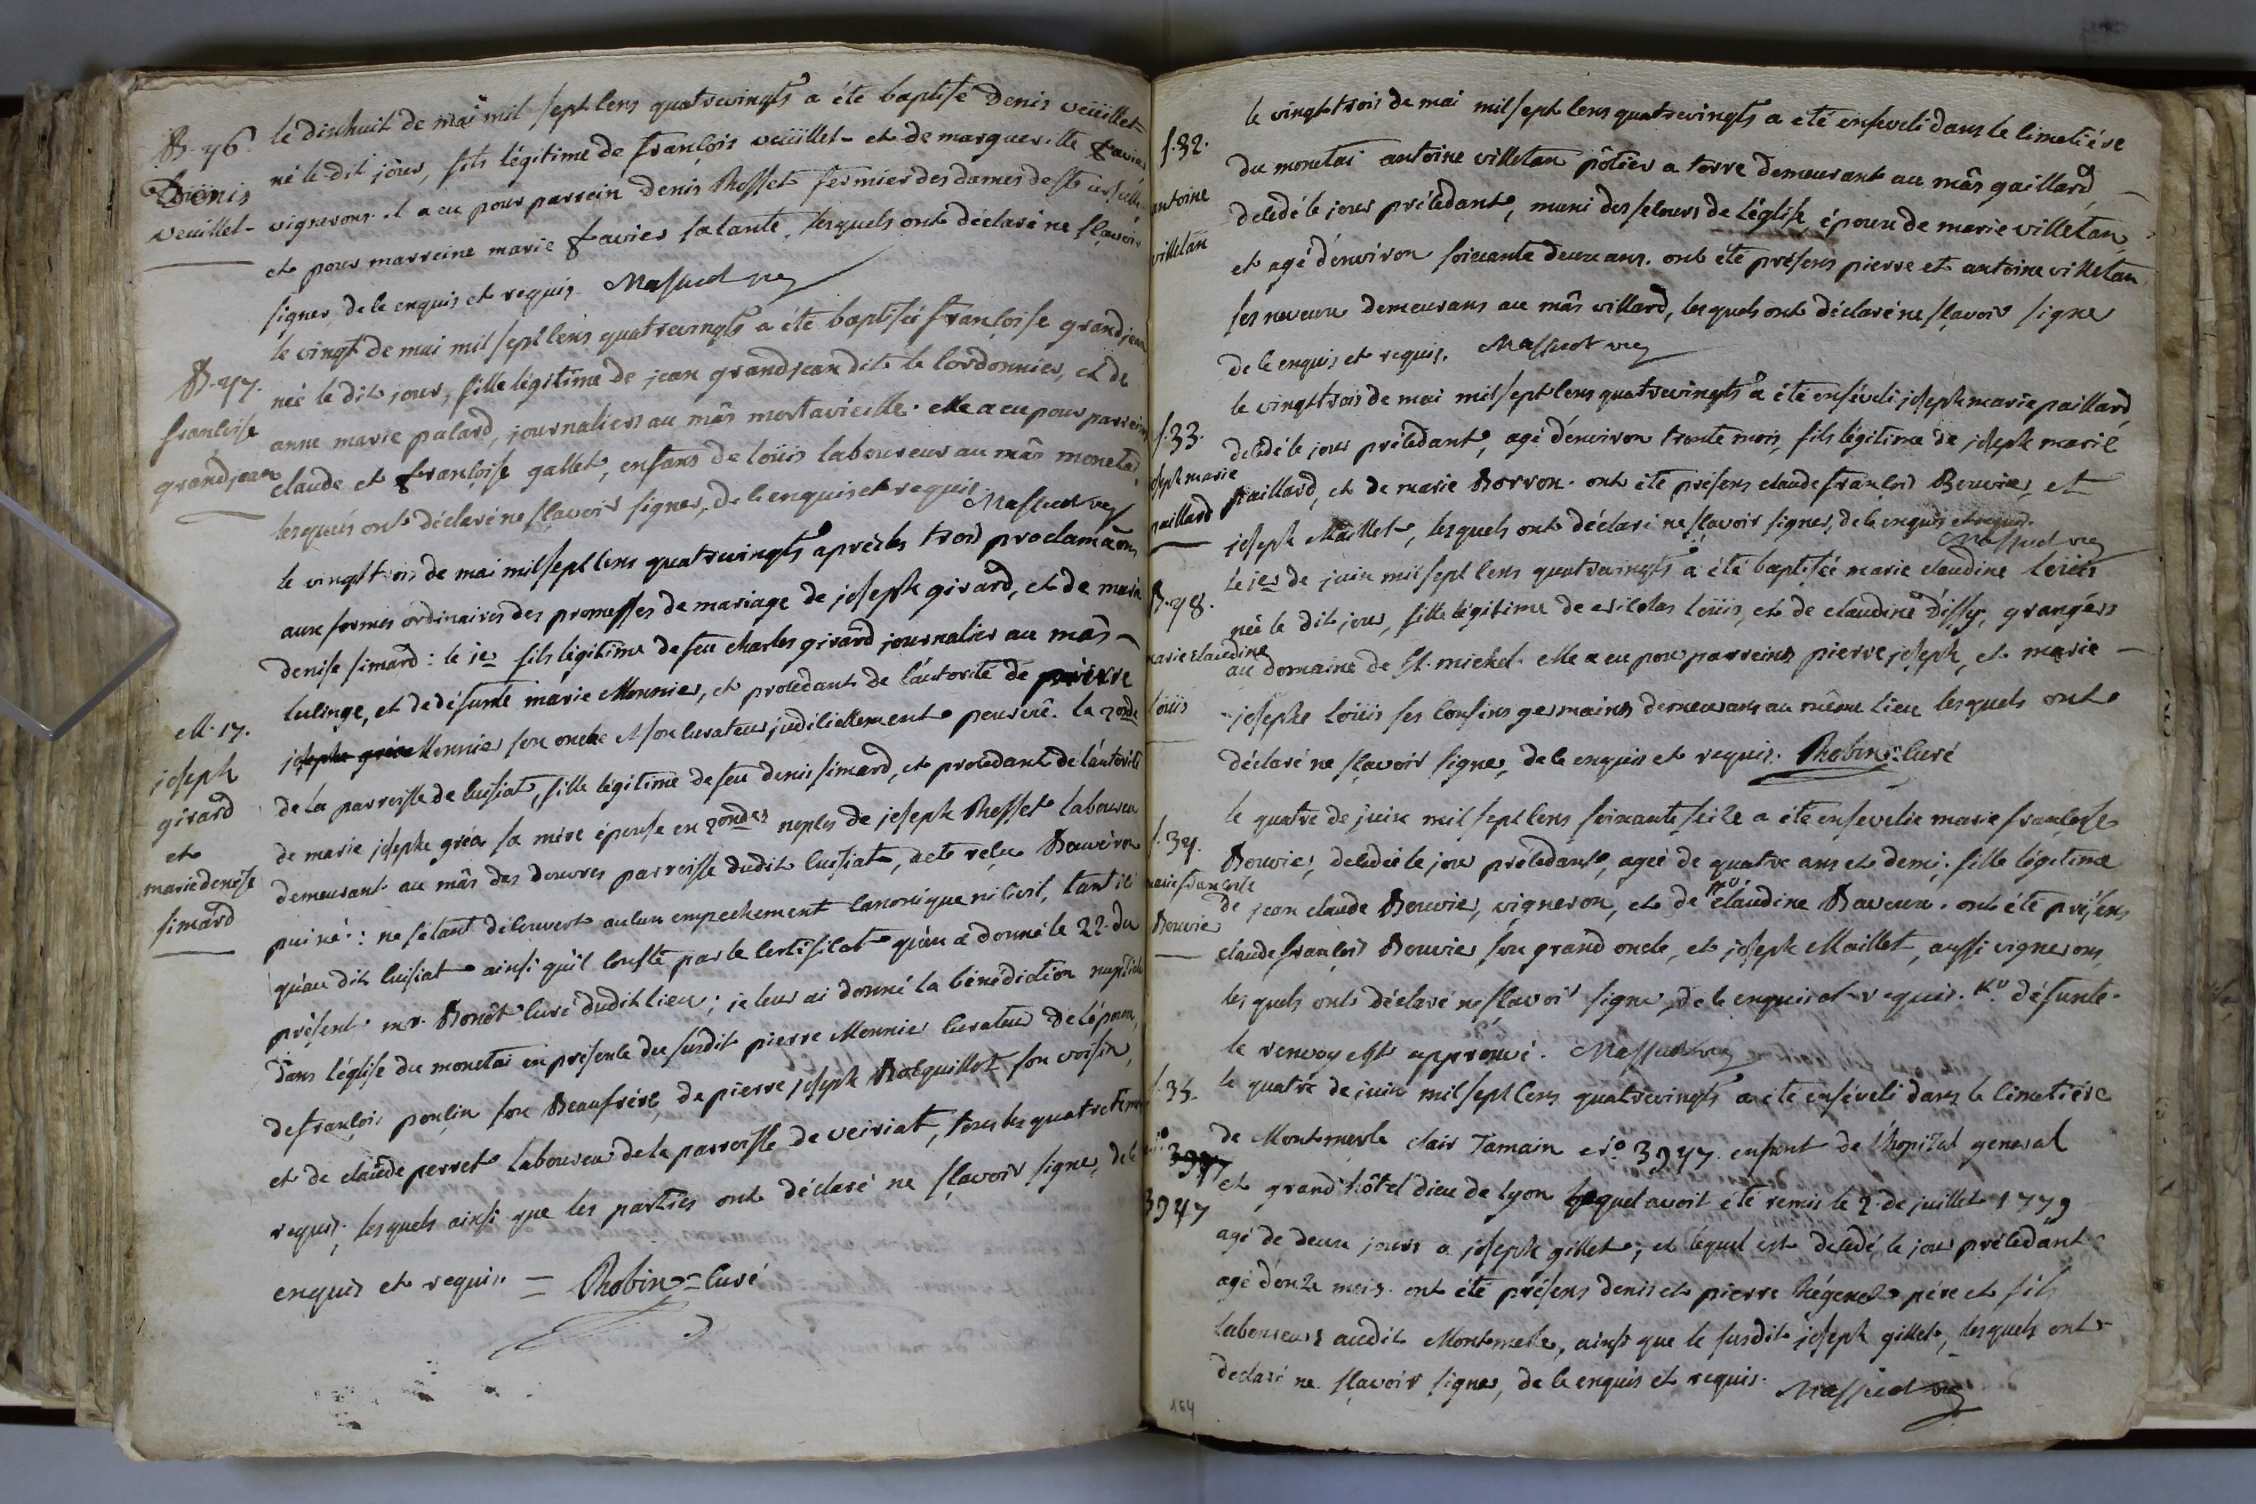 B. 46.
Denis
veüillet
le dixhuit de mai mil sept cens quatrevingts a été baptisé Denis veüillet
né le dit jour, fils légitime de françois veüillet et de marguerite favier
vignerons. il a eu pour parrein denis Rosset fermier des dames de ste ursule
et pour marreine marie favier sa tante, lesquels ont déclaré ne sçavoir
signer, de ce enquis et requis. Massuet vic
B. 47.
françoise
grandjean
le vingt de mai mil sept cens quatrevingts a été baptisée françoise grandjean
née le dit jour, fille légitime de jean grandjean dit le cordonnier, et de
anne marie palard, journaliers au mâs mortavieille. elle a eu pour parreins
claude et françoise gallet, enfans de loüis laboureur au mâs monetai
lesquels ont déclaré ne sçavoir signer, de ce enquis et requis. Massuet vic
M. 17.
joseph
girard
et
marie denise
simard
le vingt trois de mai mil sept cens quatrevingts après les trois proclamaons
aux formes ordinaires des promesses de mariage de joseph girard, et de marie
denise simard: le 1er fils légitime de feu charles girard journalier au mâs
lulinge, et de défunte marie Monnier, et procedant de l'autorité de pierre
Monnier son oncle et son curateur judiciellement peurvû. la 2onde
de la parroisse de cuisiat, fille légitime de feu denis simard, et procedant de l'autorité
de marie josephe gréa sa mére épouse en 2ondes nopces de joseph Rosset laboureur
demeurant au mâs des douvres parroisse dudit cuisiat, acte reçu Bouveiron
puiné: ne s'étant découvert aucun empechement canonique ni civil, tant ici
qu'au dit cuisiat ainsi qu'il conste par le certificat qu'en a donné le 22. du
présent mr. Bonêt curé dudit lieu; je leur ai donné la bénédiction nuptiale
dans l'église du monetai en présence du susdit pierre Monnier curateur de l'époux,
de françois poncin son Beaufrére, de pierre joseph Bacquillot son voisin,
et de claude perret laboureur de la parroisse de veiriat, tous les quatre témoins
requis, lesquels ainsi que les parties ont déclaré ne sçavoir signer, de ce
enquis et requis = Robin = Curé
f. 32.
antoine
villetan
le vingt trois de mai mil sept cens quatrevingts a été enseveli dans le cimetiére
du monetai antoine villetan pôtier a terre demeurant au mâs gaillard,
décédé le jour précédant, muni des secours de l'église, époux de marie villetan,
et agé d'environ soixante deux ans. ont été présens pierre et antoine villetan
ses neveux demeurans au mâs villard, lesquels ont déclaré ne sçavoir signer
de ce enquis et requis. Massuet vic
f. 33.
joseph marie
paillard
le vingt trois de mai mil sept cens quatrevingts a été enséveli joseph marie paillard,
décédé le jour précedant, agé d'environ trente mois, fils légitime de joseph marie
paillard, et de marie Borron. ont été présens claude françois Bouvier, et
joseph Maillet, lesquels ont déclaré ne sçavoir signer, de ce enquis et requis.
Massuet vic
B. 48.
marie claudine
loüis
le 1er de juin mil sept cens quatrevingts a été baptisée marie claudine loüis
née le dit jour, fille légitime de nicolas loüis, et de claudine Dissy, grangers
au domaine de St. michel. elle a eu pour parreins pierre joseph, et marie
josephe loüis ses cousins germains demeurans au même lieu lesquels ont
déclaré ne sçavoir signer, de ce enquis et requis. Robin = Curé
f. 34.
marie françoise
Bouvier
le quatre de juin mil sept cens soixante seize a été ensevelie marie françoise
Bouvier, décédée le jour précédant, agée de quatre ans et demi, fille légitime
de jean claude Bouvier, vigneron, et de claudine Baveux. ont été présens
claude françois Bouvier son grand oncle, et joseph Maillet, aussi vignerons,
lesquels ont déclaré ne sçavoir signer, de ce enquis et requis. défunte.
le renvoy est approuvé. Massuet vic
f. 35.
3947
le quatre de juin mil sept cens quatrevingts a été enséveli dans le cimetiére
de Montmerle clair Jamain no 3947. enfant de l'hopital general
et grand hôtel dieu de lyon lequel avoit été remis le 2. de juillet 1779
agé de deux jours a joseph gillet; et lequel est décédé le jour précedant
agé d'onze mois. ont été présens denis et pierre Régenet pére et fils
laboureurs audit Montmerle, ainsi que le susdit joseph gillet, lesquels ont
declaré ne sçavoir signer, de ce enquis et requis. Massuet vic
164